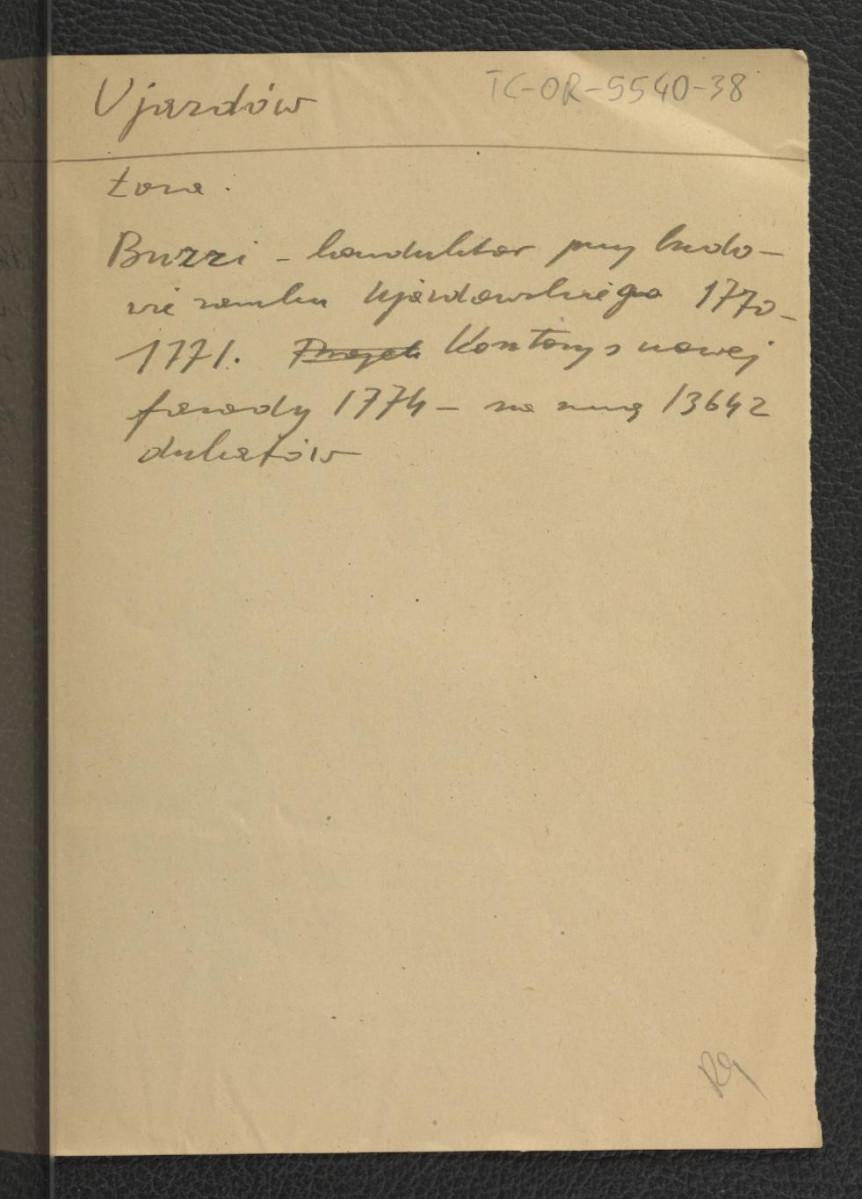 Ujazdów
TC-OR-5540-38
Łoza.
Buzzi – konduktor przy budo-
wie zamku Ujazdowskiego 1770-
1771. Projekt Kosztorys nowej
fasady 1774 – na sumę 13642
dukatów